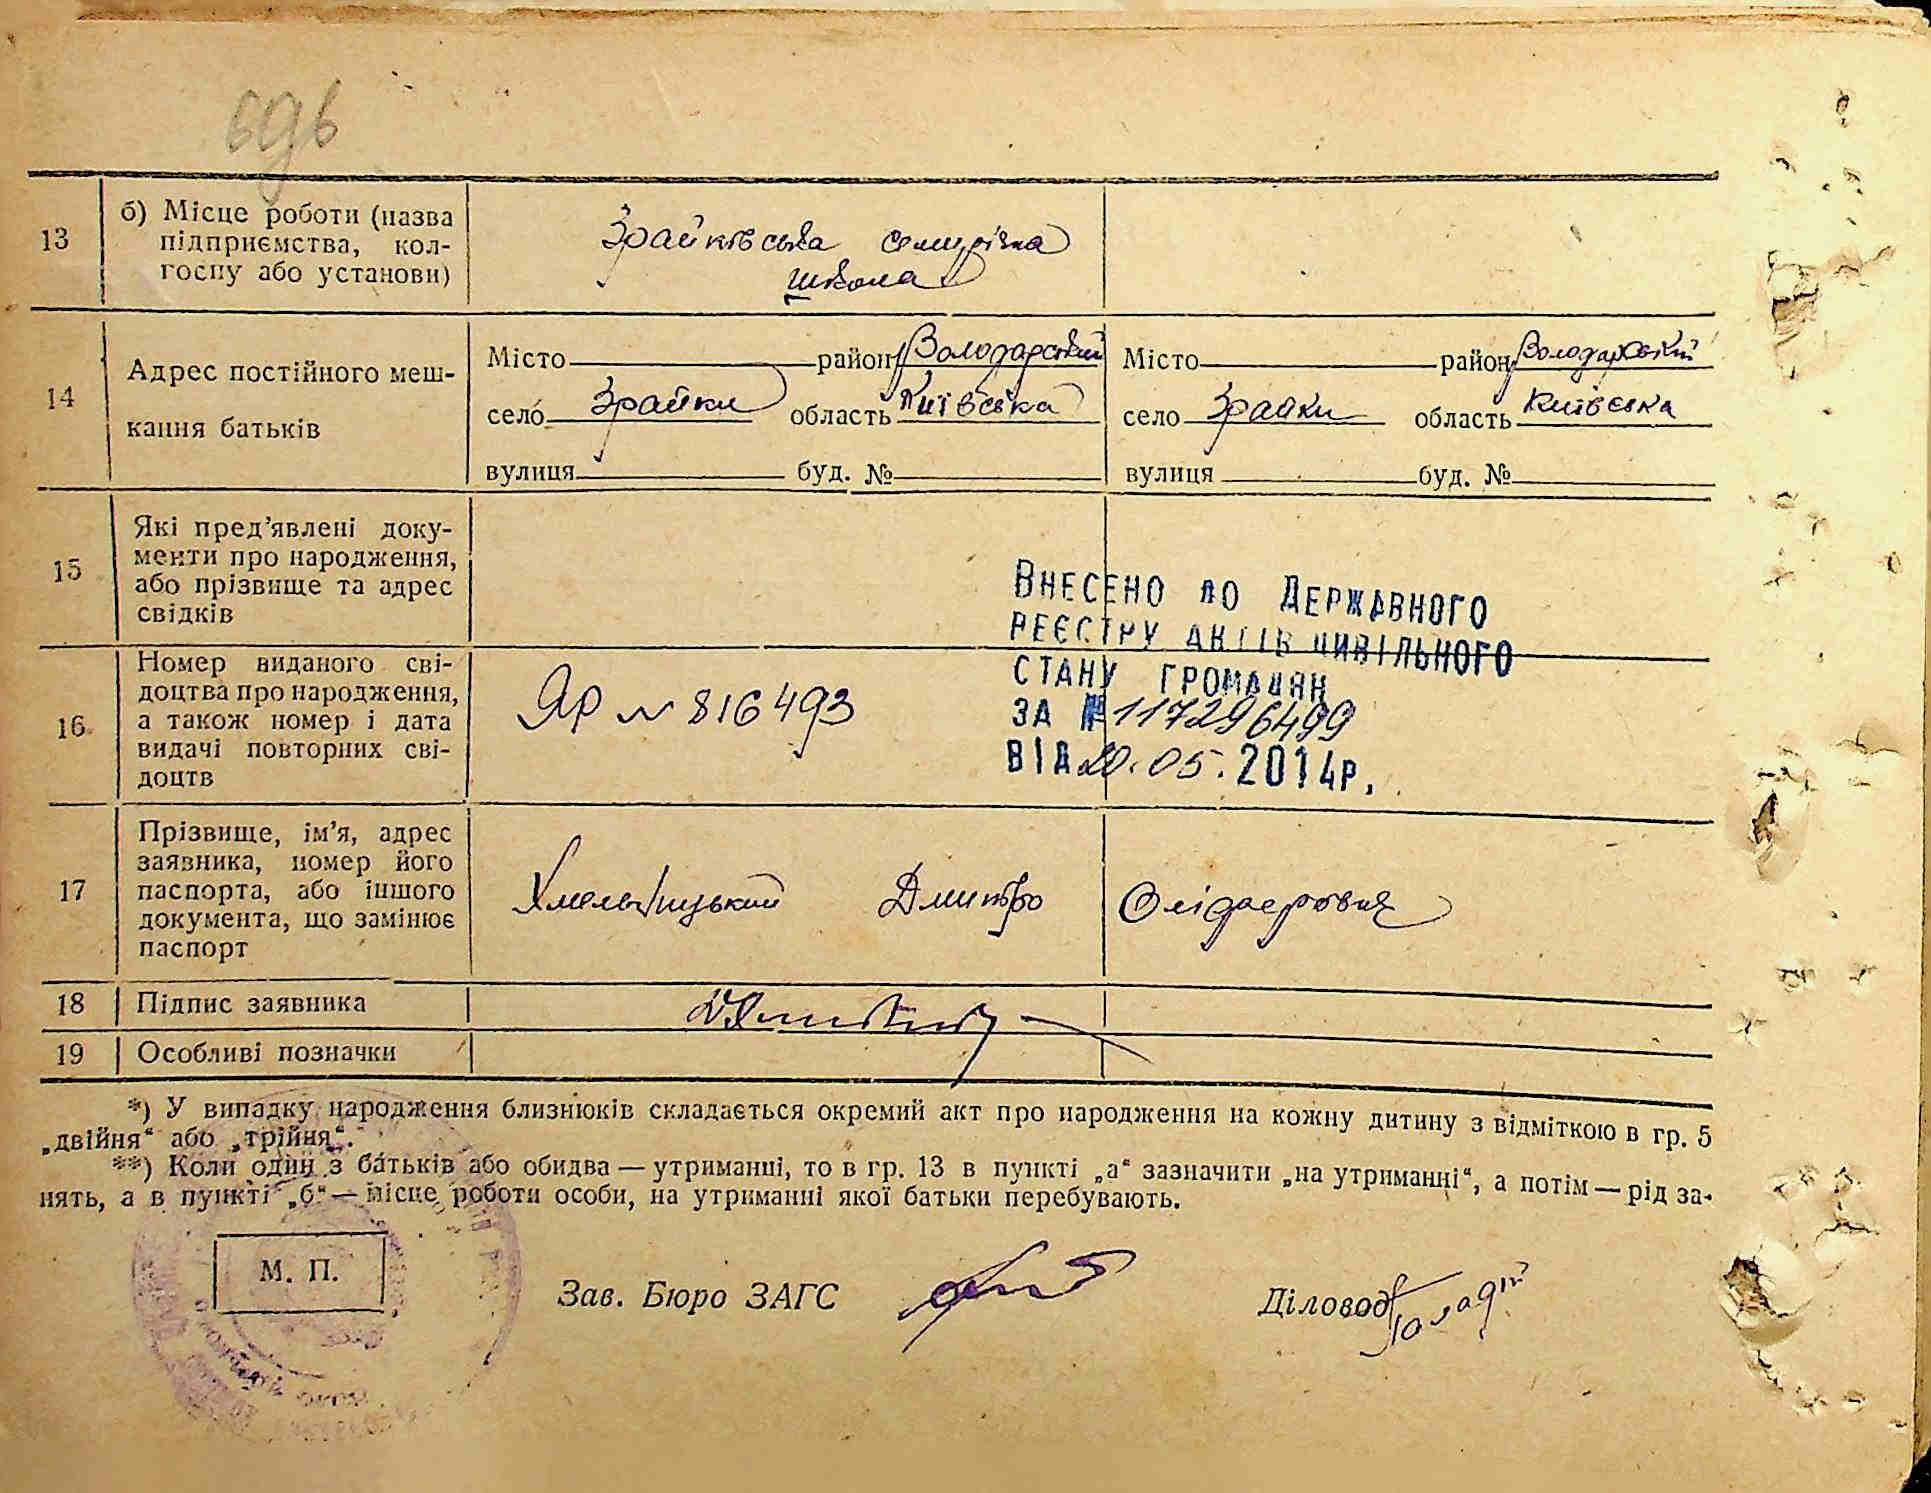 13
б) Місце роботи (назва
підприємства, кол-
госпу або установи)
Зрайківська семирічна
школа
14
Адрес постійного меш-
кання батьків
Місто район Володарський
село Зрайки область Київська
вулиця буд. №
Місто район Володарський
село Зрайки область Київська
вулиця буд. №
15
Які пред'явлені доку-
менти про народження,
або прізвище та адрес
свідків
16
Номер виданого сві-
доцтва про народження,
а також номер і дата
видачі повторних сві-
доцтв
ЯР № 816493
ВНЕСЕНО ДО ДЕРЖАВНОГО
РЕЄСТРУ АКТІВ ЦИВІЛЬНОГО
СТАНУ ГРОМАДЯН
ЗА № 117296499
ВІД 20.05.2014р.
17
Прізвище, ім'я, адрес
заявника, номер його
паспорта, або іншого
документа, що замінює
паспорт
Хмельницький Дмитро
18
Підпис заявника
19
Особливі позначки
*) У випадку народження близнюків складається окремий акт про народження на кожну дитину з відміткою в гр. 5
„двійня“ або „трійня“.
**) Коли один з батьків або обидва — утриманці, то в гр. 13 в пункті „а“ зазначити „на утриманні“, а потім — рід за-
нять, а в пункті „б“ — місце роботи особи, на утриманні якої батьки перебувають.
М. П.
Зав. Бюро ЗАГС
Діловод